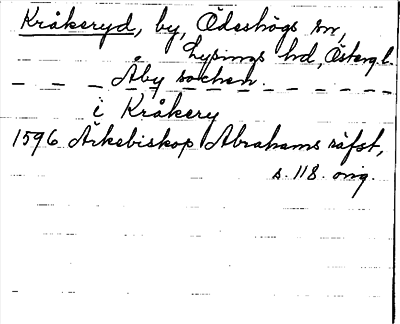 Kråkeryd, by, Ödeshögs sn,
Lysings hd, Östergl.
— — — Åby socken.
i Kråkery
1596 Ärkebiskop Abrahams räfst,
s. 118. orig.